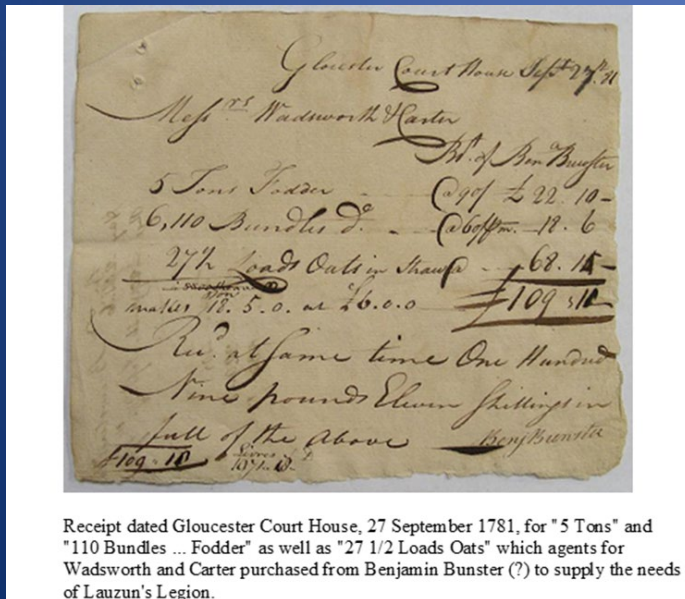 Gloucester Court House Sept. 27th. 81
Messrs Wadsworth & Carter
Bt. of Benja Bunster
5 Tons Fodder @ 90/ £ 22. 10 -
6,110 Bundles do. @ 60/ 18. 6
27 1/2 Loads Oats in Straw @ 68. 15 -
Ton
makes 18. 5. 0. at £6. 0. 0 £109 : 11
Recd. at Same time One Hundred
Nine pounds Eleven Shillings in
full of the above Benj Bunster
£109 : 11 Livres
Receipt dated Gloucester Court House, 27 September 1781, for "5 Tons" and
"110 Bundles ... Fodder" as well as "27 1/2 Loads Oats" which agents for
Wadsworth and Carter purchased from Benjamin Bunster (?) to supply the needs
of Lauzun's Legion.